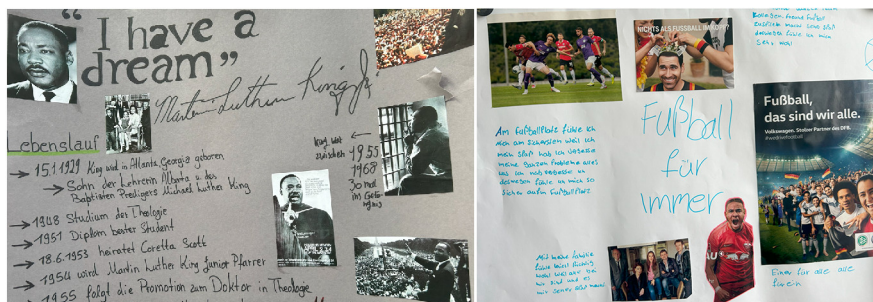 “I have a
dream”
Martin Luther King Jr
Lebenslauf
→ 15.1.1929 King wird in Atlanta, Georgia geboren
→ Sohn der Lehrerin Alberta u. des
Baptisten Predigers Michael Luther King
→ 1948 Studium der Theologie
→ 1951 Diplom bester Student
→ 18.6.1953 heiratet Coretta Scott
→ 1954 wird Martin Luther King Junior Pfarrer
→ 1955 folgt die Promotion zum Doktor in Theologie
King war ←
zwischen 1955
1968
30 mal
im Gefä
ngnis
NICHTS ALS FUSSBALL IM KOPF?
Fußball
für
immer
Am Fußballplatz fühle ich
mich am sichersten weil ich
mein Spaß hab ich vergesse
meine ganzen Probleme alles
was ich hab vergesse un
deswegen fühle un mich so
sicher aufm Fußballplatz
Fußball,
das sind wir alle.
Volkswagen. Stolzer Partner des DFB.
#wedrivefootball
Mit meine familie
fühle mich richtig
wohl weil wir bei
wir sind und es
Einer für alle alle
für ein